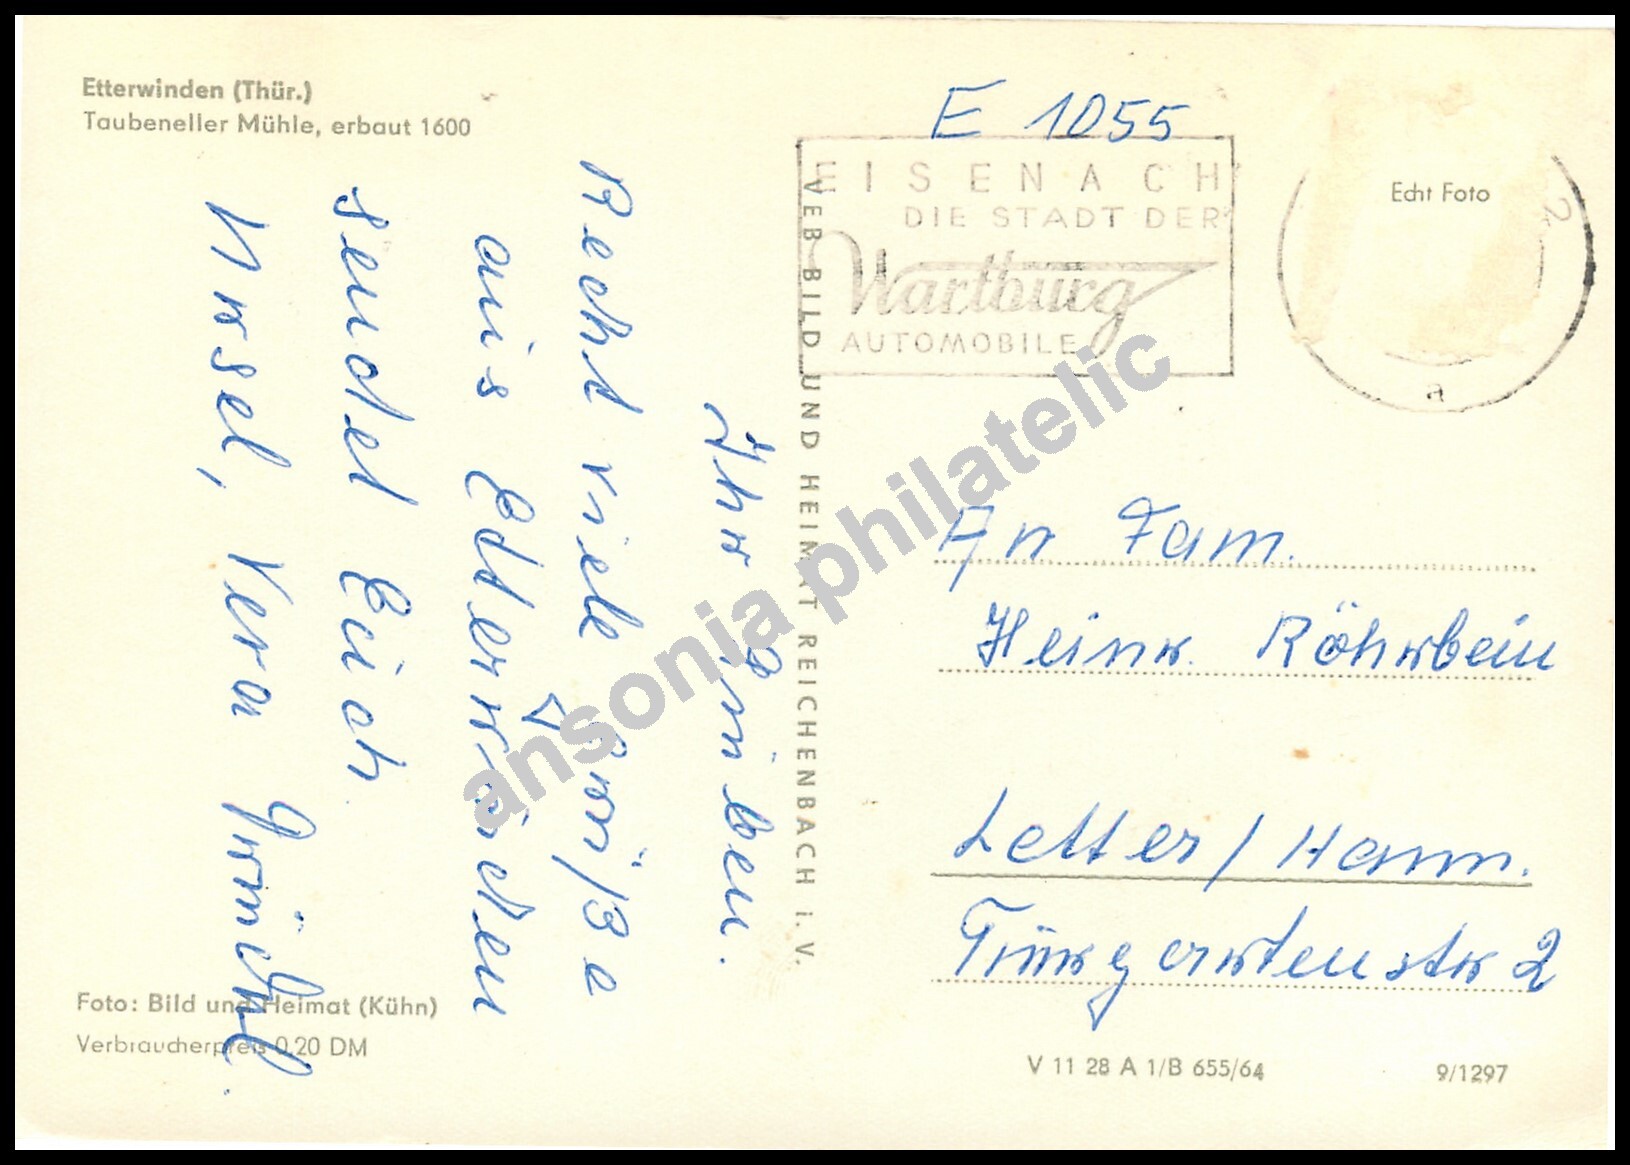 Etterwinden (Thür.)
Taubeneller Mühle, erbaut 1600
Ihr Lieben.
Recht viele Grüße
aus Etterwinden
sendet Euch
Ursel, Vera
Foto: Bild und Heimat (Kühn)
Verbraucherpreis 0,20 DM
VEB BILD UND HEIMAT REICHENBACH i. V.
E 1055
EISENACH
DIE STADT DER
Wartburg
AUTOMOBILE
Echt Foto
a
An Fam.
Heinr. Röhrbein
Letter / Hann.
2
V 11 28 A 1/B 655/64
9/1297
ansonia philatelic